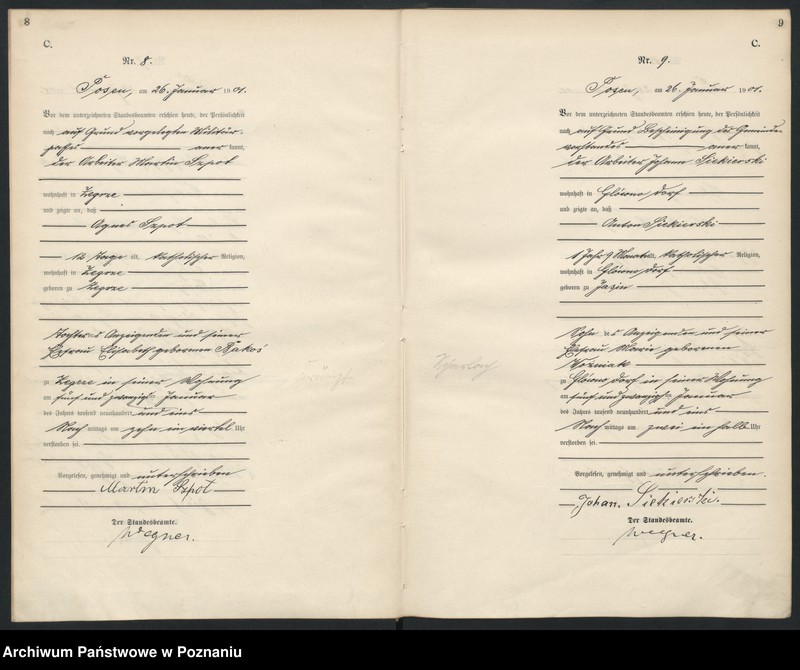 8
C.
Nr. 8.
Posen, am 26. Januar 1901.
Vor dem unterzeichneten Standesbeamten erschien heute, der Persönlichkeit
nach auf Grund vorgelegten Militär-
passes anerkannt,
der Arbeiter Martin Szpot
wohnhaft in Zegrze
und zeigte an, daß
Agnes Szpot
12 Tage alt, katholischer Religion,
wohnhaft in Zegrze
geboren zu Zegrze
Tochter des Anzeigenden und seiner
Ehefrau Elisabeth geborenen Ptakoś
zu Zegrze in seiner Wohnung
am fünf und zwanzigsten Januar
des Jahres tausend neunhundert und eins
Nachmittags um zehn ein viertel Uhr
verstorben sei.
Vorgelesen, genehmigt und unterschrieben
Martin Szpot
Der Standesbeamte.
Wegner.
9
C.
Nr. 9.
Posen, am 26. Januar 1901.
Vor dem unterzeichneten Standesbeamten erschien heute, der Persönlichkeit
nach auf Grund Bescheinigung des Gemeinde-
vorstandes anerkannt,
der Arbeiter Johann Siekierski
wohnhaft in Glówno dorf
und zeigte an, daß
Anton Siekierski
1 Jahr 9 Monate alt, katholischer Religion,
wohnhaft in Glówno dorf
geboren zu Jasin
Sohn des Anzeigenden und seiner
Ehefrau Marie geborenen
Woźniak
zu Glówno dorf in seiner Wohnung
am fünf und zwanzigsten Januar
des Jahres tausend neunhundert und eins
Nachmittags um zwei ein halb Uhr
verstorben sei.
Vorgelesen, genehmigt und unterschrieben.
Johan. Siekierski.
Der Standesbeamte.
Wegner.
Archiwum Państwowe w Poznaniu